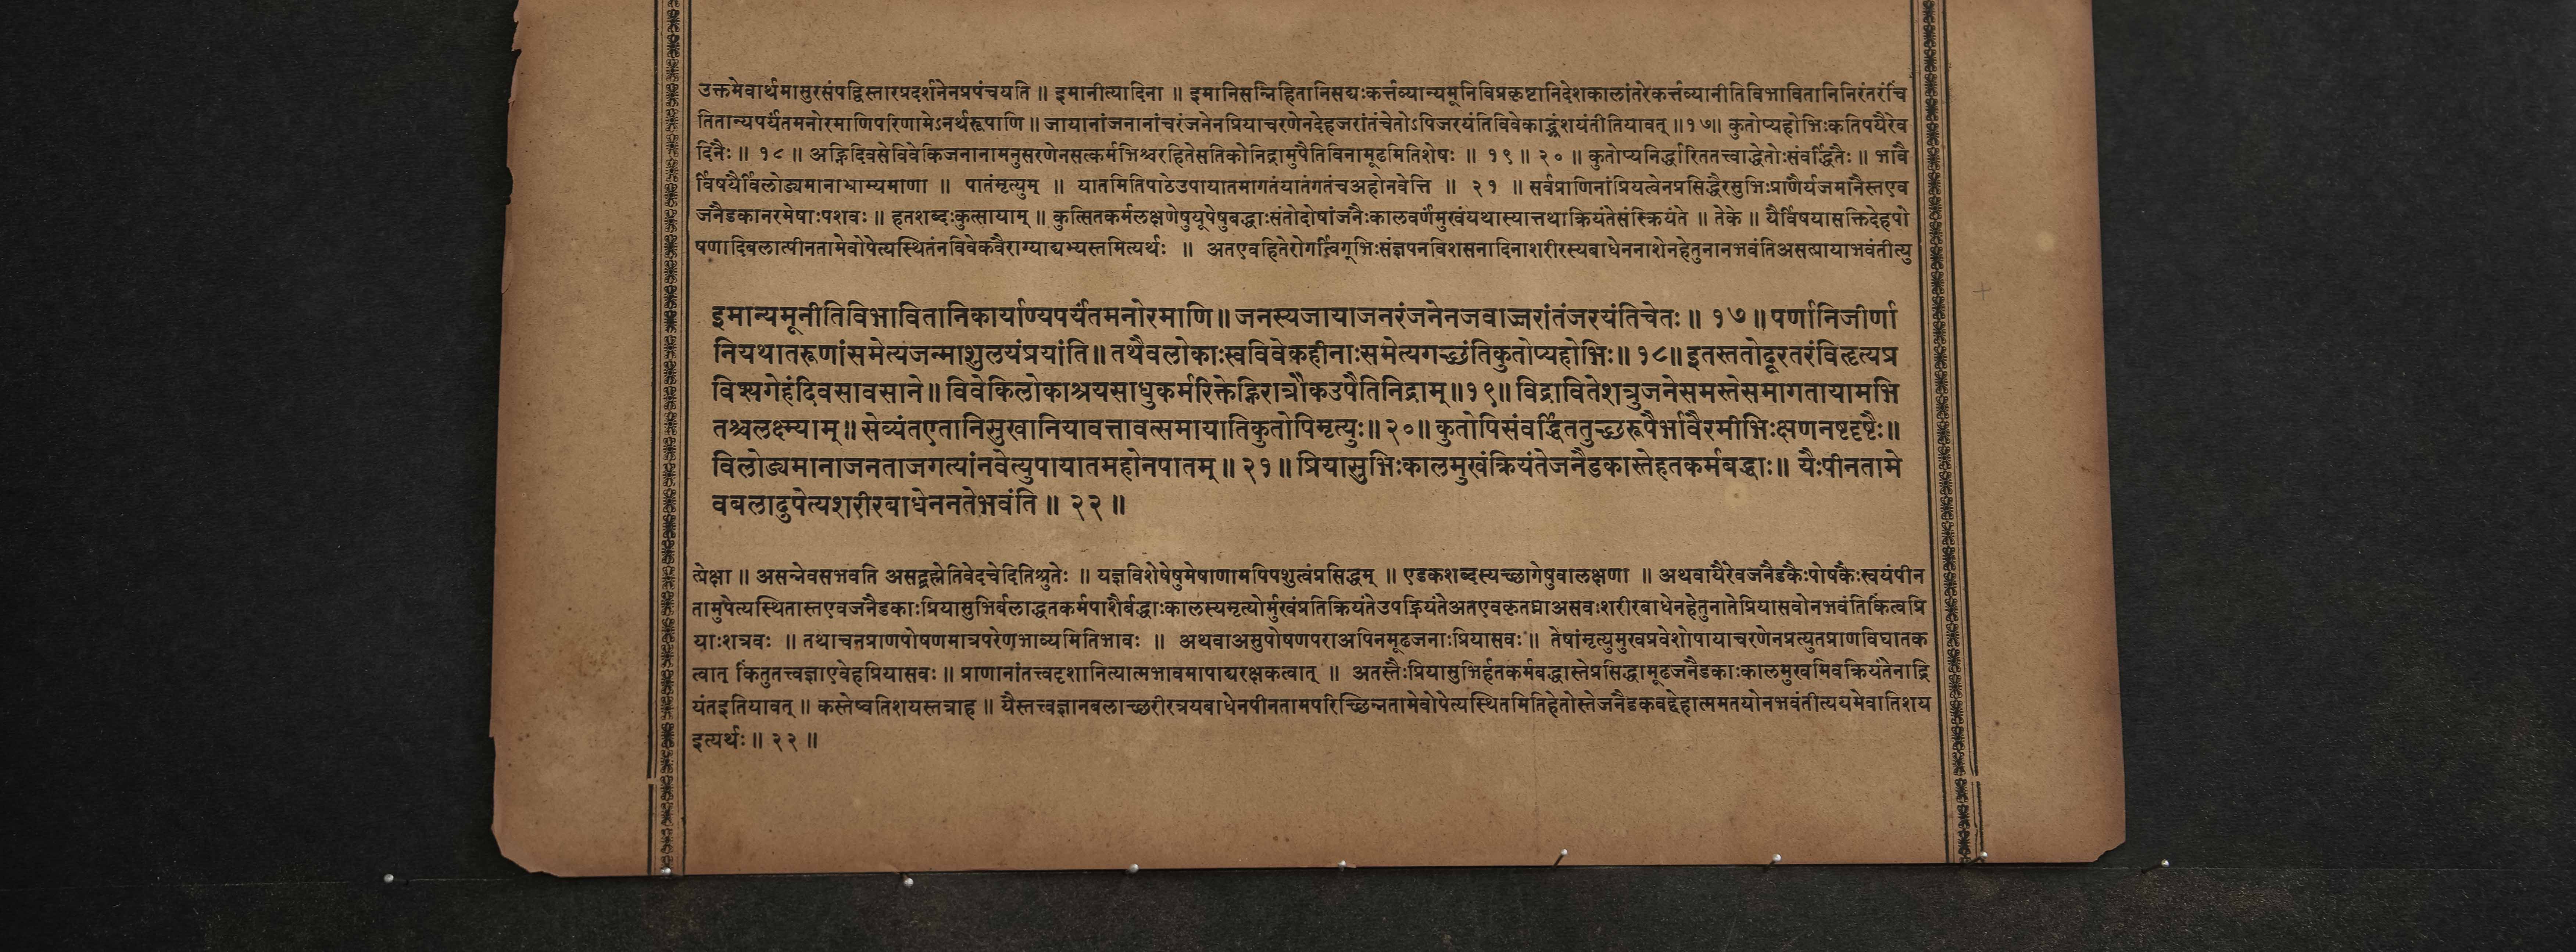 उक्तमेवार्थमासुरसंपद्विस्तारप्रदर्शनेनप्रपंचयति ॥ इमानीत्यादिना ॥ इमानिसन्निहितानिसद्यःकर्त्तव्यान्यमूनिविप्रकृष्टानिदेशकालांतरेकर्त्तव्यानीतिविभावितानिनिरंतरंचिं
तितान्यपर्यंतमनोरमाणिपरिणामेऽनर्थरूपाणि ॥ जायानांजनानांचरंजनेनप्रियाचरणेनदेहजरांतंचेतोऽपिजरयंतिविवेकाद्भ्रंशयंतीतियावत् ॥१७॥ कुतोप्यहोभिःकतिपयैरेव
दिनैः ॥ १८ ॥ अह्निदिवसेविवेकिजनानामनुसरणेनसत्कर्मभिश्चरहितेसतिकोनिद्रामुपैतिविनामूढमितिशेषः ॥ १९ ॥ २० ॥ कुतोप्यनिर्द्धारिततत्त्वाद्धेतोःसंवर्द्धितैः ॥ भावै
र्विषयैर्विलोड्यमानाभ्राम्यमाणा ॥ पातंमृत्युम् ॥ यातमितिपाठेउपायातमागतंयातंगतंचअहोनवेत्ति ॥ २१ ॥ सर्वप्राणिनांप्रियत्वेनप्रसिद्धैरसुभिःप्राणैर्यजमानैस्तएव
जनैडकानरमेषाःपशवः ॥ हतशब्दःकुत्सायाम् ॥ कुत्सितकर्मलक्षणेषुयूपेषुबद्धाःसंतोदोषांजनैःकालवर्णंमुखंयथास्यात्तथाक्रियंतेसंस्क्रियंते ॥ तेके ॥ यैर्विषयासक्तिदेहपो
षणादिबलात्पीनतामेवोपेत्यस्थितंनविवेकवैराग्याद्यभ्यस्तमित्यर्थः ॥ अतएवहितेरोगर्त्विग्भिःसंज्ञपनविशसनादिनाशरीरस्यबाधेननाशेनहेतुनानभवंतिअसत्प्रायाभवंतीत्यु
इमान्यमूनीतिविभावितानिकार्याण्यपर्यंतमनोरमाणि ॥ जनस्यजायाजनरंजनेनजवाज्जरांतंजरयंतिचेतः ॥ १७ ॥ पर्णानिजीर्णा
नियथातरूणांसमेत्यजन्माशुलयंप्रयांति ॥ तथैवलोकाःस्वविवेकहीनाःसमेत्यगच्छंतिकुतोप्यहोभिः ॥ १८ ॥ इतस्ततोदूरतरंविहृत्यप्र
विश्यगेहंदिवसावसाने ॥ विवेकिलोकाश्रयसाधुकर्मरिक्तेह्निरात्रौकउपैतिनिद्राम् ॥१९॥ विद्रावितेशत्रुजनेसमस्तेसमागतायामभि
तश्चलक्ष्म्याम् ॥ सेव्यंतएतानिसुखानियावत्तावत्समायातिकुतोपिमृत्युः ॥ २० ॥ कुतोपिसंवर्द्धिततुच्छरूपैर्भावैरमीभिःक्षणनष्टदृष्टैः ॥
विलोड्यमानाजनताजगत्यांनवेत्युपायातमहोनपातम् ॥ २१ ॥ प्रियासुभिःकालमुखंक्रियंतेजनैडकास्तेहतकर्मबद्धाः ॥ यैःपीनतामे
वबलादुपेत्यशरीरबाधेननतेभवंति ॥ २२ ॥
त्प्रेक्षा ॥ असन्नेवसभवति असद्ब्रह्मेतिवेदचेदितिश्रुतेः ॥ यज्ञविशेषेषुमेषाणामपिपशुत्वंप्रसिद्धम् ॥ एडकशब्दस्यच्छागेषुवालक्षणा ॥ अथवायैरेवजनैडकैःपोषकैःस्वयंपीन
तामुपेत्यस्थितास्तएवजनैडकाःप्रियासुभिर्बलाद्धतकर्मपाशैर्बद्धाःकालस्यमृत्योर्मुखंप्रतिक्रियंतेउपह्रियंतेअतएवकृतघ्नाअसवःशरीरबाधेनहेतुनातेप्रियासवोनभवंतिकिंत्वप्रि
याःशत्रवः ॥ तथाचनप्राणपोषणमात्रपरेणभाव्यमितिभावः ॥ अथवाअसुपोषणपराअपिनमूढजनाःप्रियासवः ॥ तेषांमृत्युमुखप्रवेशोपायाचरणेनप्रत्युतप्राणविघातक
त्वात् किंतुतत्त्वज्ञाएवेहप्रियासवः ॥ प्राणानांतत्त्वदृशानित्यात्मभावमापाद्यरक्षकत्वात् ॥ अतस्तैःप्रियासुभिर्हतकर्मबद्धास्तेप्रसिद्धामूढजनैडकाःकालमुखमिवक्रियंतेनाद्रि
यंतइतियावत् ॥ कस्तेष्वतिशयस्तत्राह ॥ यैस्तत्त्वज्ञानबलाच्छरीरत्रयबाधेनपीनतामपरिच्छिन्नतामेवोपेत्यस्थितमितिहेतोस्तेजनैडकवद्देहात्ममतयोनभवंतीत्ययमेवातिशय
इत्यर्थः ॥ २२ ॥